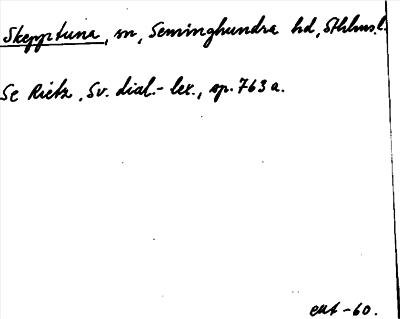 Skepptuna, sn, Seminghundra hd, Sthlms l.
Se Rietz, Sv. dial.-lex., sp. 763 a.
ent -60.